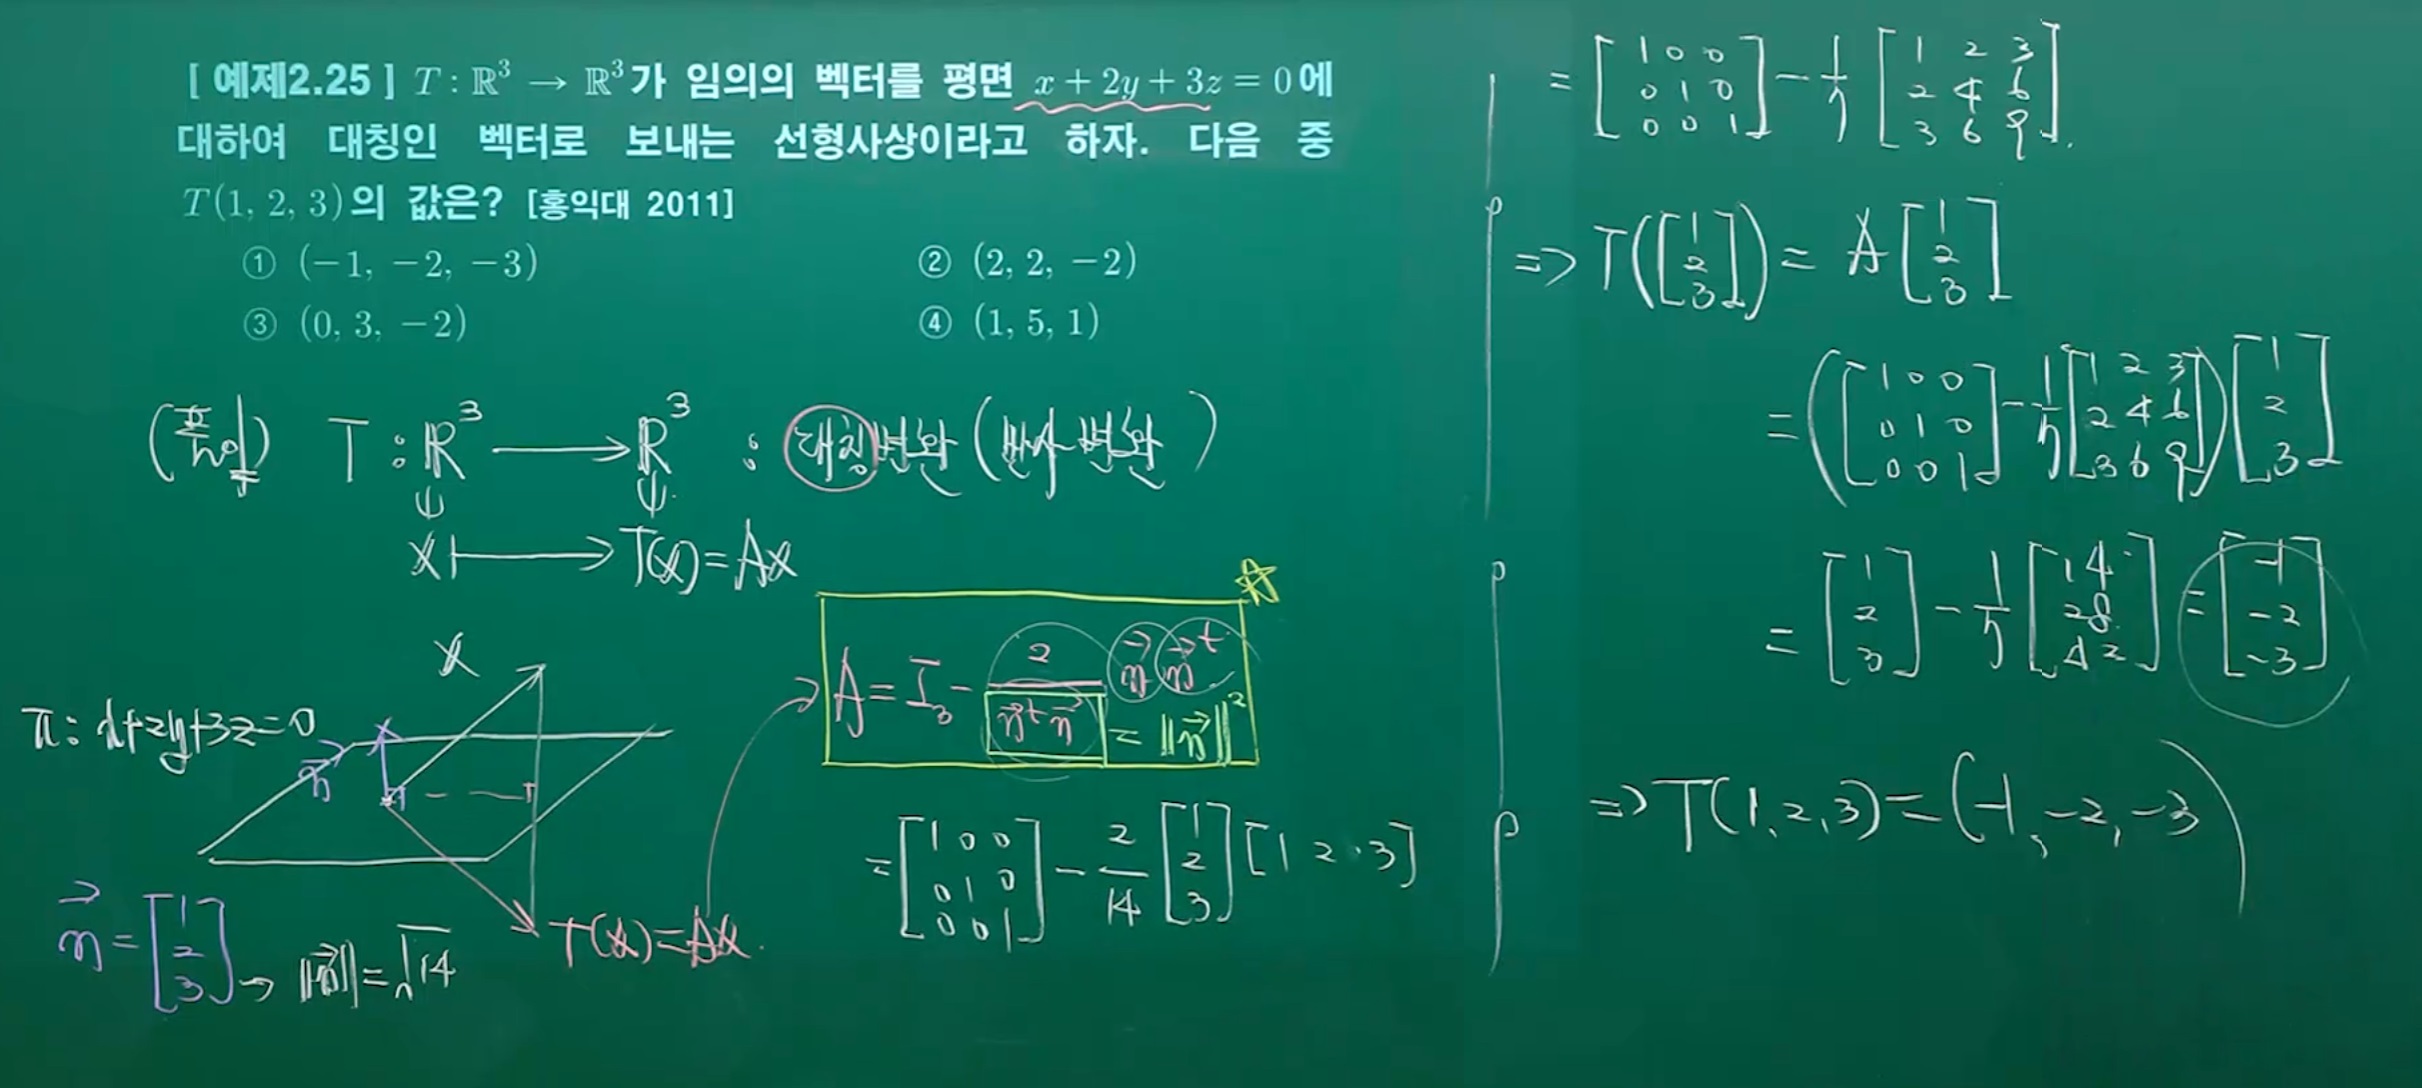 [ 예제2.25 ] T : ℝ³ → ℝ³가 임의의 벡터를 평면 x + 2y + 3z = 0에
대하여 대칭인 벡터로 보내는 선형사상이라고 하자. 다음 중
T(1, 2, 3)의 값은? [홍익대 2011]
① (−1, −2, −3) ② (2, 2, −2)
③ (0, 3, −2) ④ (1, 5, 1)
(풀이) T : ℝ³ → ℝ³ : 대칭변환 (반사변환)
ψ ψ
x ↦ T(x) = Ax
x
π: x+2y+3z=0
n⃗
T(x) = Ax
n⃗ = [1 2 3] → ||n⃗|| = √14
A = I₃ − 2/(n⃗ᵗn⃗) n⃗ n⃗ᵗ
n⃗ᵗn⃗ = ||n⃗||²
= [1 0 0; 0 1 0; 0 0 1] − 2/14 [1; 2; 3] [1 2 3]
= [1 0 0; 0 1 0; 0 0 1] − 1/7 [1 2 3; 2 4 6; 3 6 9]
⇒ T([1; 2; 3]) = A [1; 2; 3]
= ([1 0 0; 0 1 0; 0 0 1] − 1/7 [1 2 3; 2 4 6; 3 6 9]) [1; 2; 3]
= [1; 2; 3] − 1/7 [14; 28; 42] = [−1; −2; −3]
⇒ T(1, 2, 3) = (−1, −2, −3)